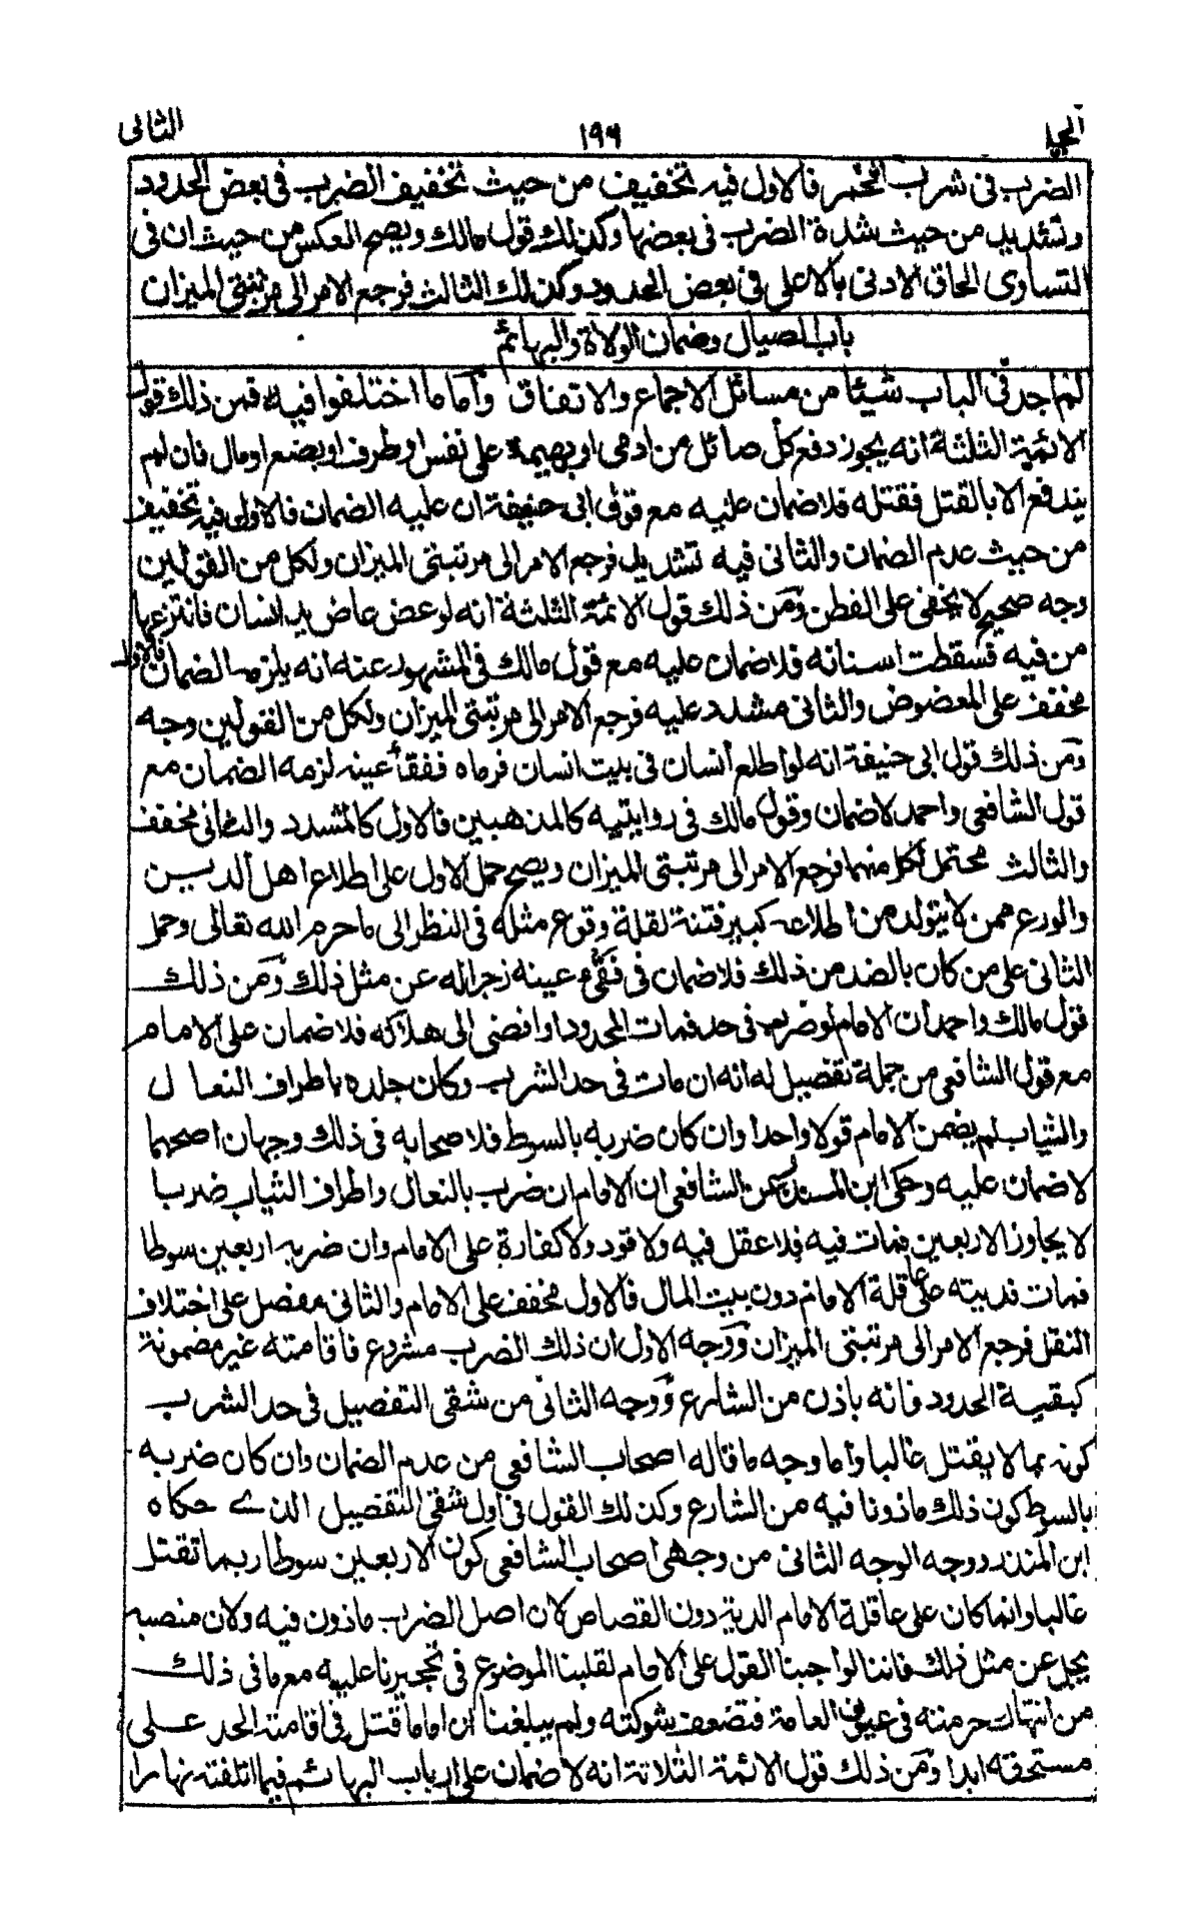 الجلد ١٩٩ الثانى
الضرب فى شرب الخمر فالاول فيه تخفيف من حيث تخفيف الضرب فى بعض الحدود
وتشديد من حيث شدة الضرب فى بعضها وكذلك قول مالك ويصح العكس من حيث ان فى
التساوى الحاق الادنى بالاعلى فى بعض الحدود وكذلك الثالث فرجع الامر الى مرتبتى الميزان
باب الصيال وضمان الولاة والبهائم
لم اجد فى الباب شيئا من مسائل الاجماع والاتفاق واما ما اختلفوا فيه فمن ذلك قول
الائمة الثلثة انه يجوز دفع كل صائل من ادمى او بهيمة على نفس او طرف او بضع او مال فان لم
يندفع الا بالقتل فقتله فلا ضمان عليه مع قول ابى حنيفة ان عليه الضمان فالاول فيه تخفيف
من حيث عدم الضمان والثانى فيه تشديد فرجع الامر الى مرتبتى الميزان ولكل من القولين
وجه صحيح لا يخفى على الفطن ومن ذلك قول الائمة الثلثة انه لو عض عاض يد انسان فانتزعها
من فيه فسقطت اسنانه فلا ضمان عليه مع قول مالك فى المشهور عنه انه يلزمه الضمان فالاول
مخفف على المعضوض والثانى مشدد عليه فرجع الامر الى مرتبتى الميزان ولكل من القولين وجه
ومن ذلك قول ابى حنيفة انه لو اطلع انسان فى بيت انسان فرماه ففقأ عينه لزمه الضمان مع
قول الشافعى واحمد لا ضمان وقول مالك فى روايتيه كالمذهبين فالاول كالمشدد والثانى مخفف
والثالث محتمل لكل منهما فرجع الامر الى مرتبتى الميزان ويصح حمل الاول على اطلاع اهل الدين
والورع ممن لا يتولد من اطلاعه كبير فتنة لقلة وقوع مثله فى النظر الى ما حرم الله تعالى وحمل
الثانى على من كان بالضد من ذلك فلا ضمان فى فقء عينه زجرا له عن مثل ذلك ومن ذلك
قول مالك واحمد ان الامام لو ضربه فى حد فمات المحدود او افضى الى هلاكه فلا ضمان على الامام
مع قول الشافعى من جملة تفصيل له انه ان مات فى حد الشرب وكان جلده باطراف النعال
والثياب لم يضمن الامام قولا واحدا وان كان ضربه بالسوط فلاصحابه فى ذلك وجهان اصحهما
لا ضمان عليه وحكى ابن المنذر عن الشافعى ان الامام ان ضرب بالنعال واطراف الثياب ضربا
لا يجاوز الاربعين فمات فيه فلا عقل فيه ولا قود ولا كفارة على الامام وان ضربه اربعين سوطا
فمات فديته على عاقلة الامام دون بيت المال فالاول مخفف على الامام والثانى مفصل على اختلاف
النقل فرجع الامر الى مرتبتى الميزان ووجه الاول ان ذلك الضرب مشروع فاقامته غير مضمونة
كبقية الحدود فانه باذن من الشارع ووجه الثانى من شقى التفصيل فى حد الشرب
كونه بما لا يقتل غالبا واما وجه ما قاله اصحاب الشافعى من عدم الضمان وان كان ضربه
بالسوط كون ذلك ماذونا فيه من الشارع وكذلك القول فى اول شقى التفصيل الذى حكاه
ابن المنذر ووجه الوجه الثانى من وجهى اصحاب الشافعى كون الاربعين سوطا ربما تقتل
غالبا وانما كان على عاقلة الامام الدية دون القصاص لان اصل الضرب ماذون فيه ولان منصبه
يجل عن مثل ذلك فاننا لو اوجبنا القول على الامام لقلبنا الموضوع فى تحجيرنا عليه مع ما فى ذلك
من انتهاك حرمته فى عيون العامة فتضعف شوكته ولم يبلغنا ان اماما قتل فى اقامته الحد على
مستحقه ابدا ومن ذلك قول الائمة الثلاثة انه لا ضمان على ارباب البهائم فيما اتلفته نهارا